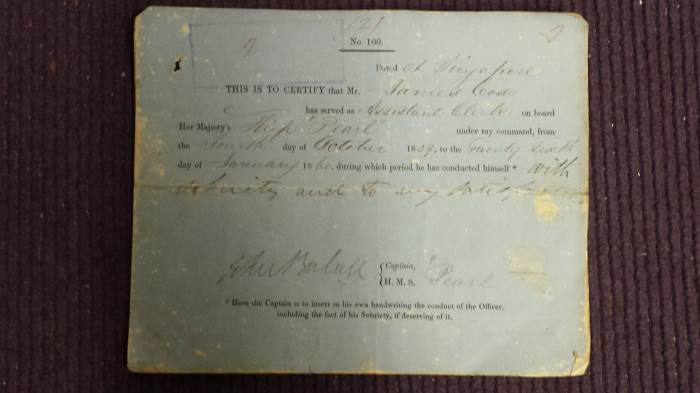 121
2
2
No. 100.
Dated at Singapore
THIS IS TO CERTIFY that Mr. James Cox
has served as Assistant Clerk on board
Her Majesty's Ship "Pearl" under my command, from
the Fourth day of October 1859, to the Twenty Sixth
day of January 1860, during which period he has conducted himself * with
sobriety and to my satisfaction
John Borlase
Captain,
H. M. S. "Pearl"
* Here the Captain is to insert in his own handwriting the conduct of the Officer,
including the fact of his Sobriety, if deserving of it.